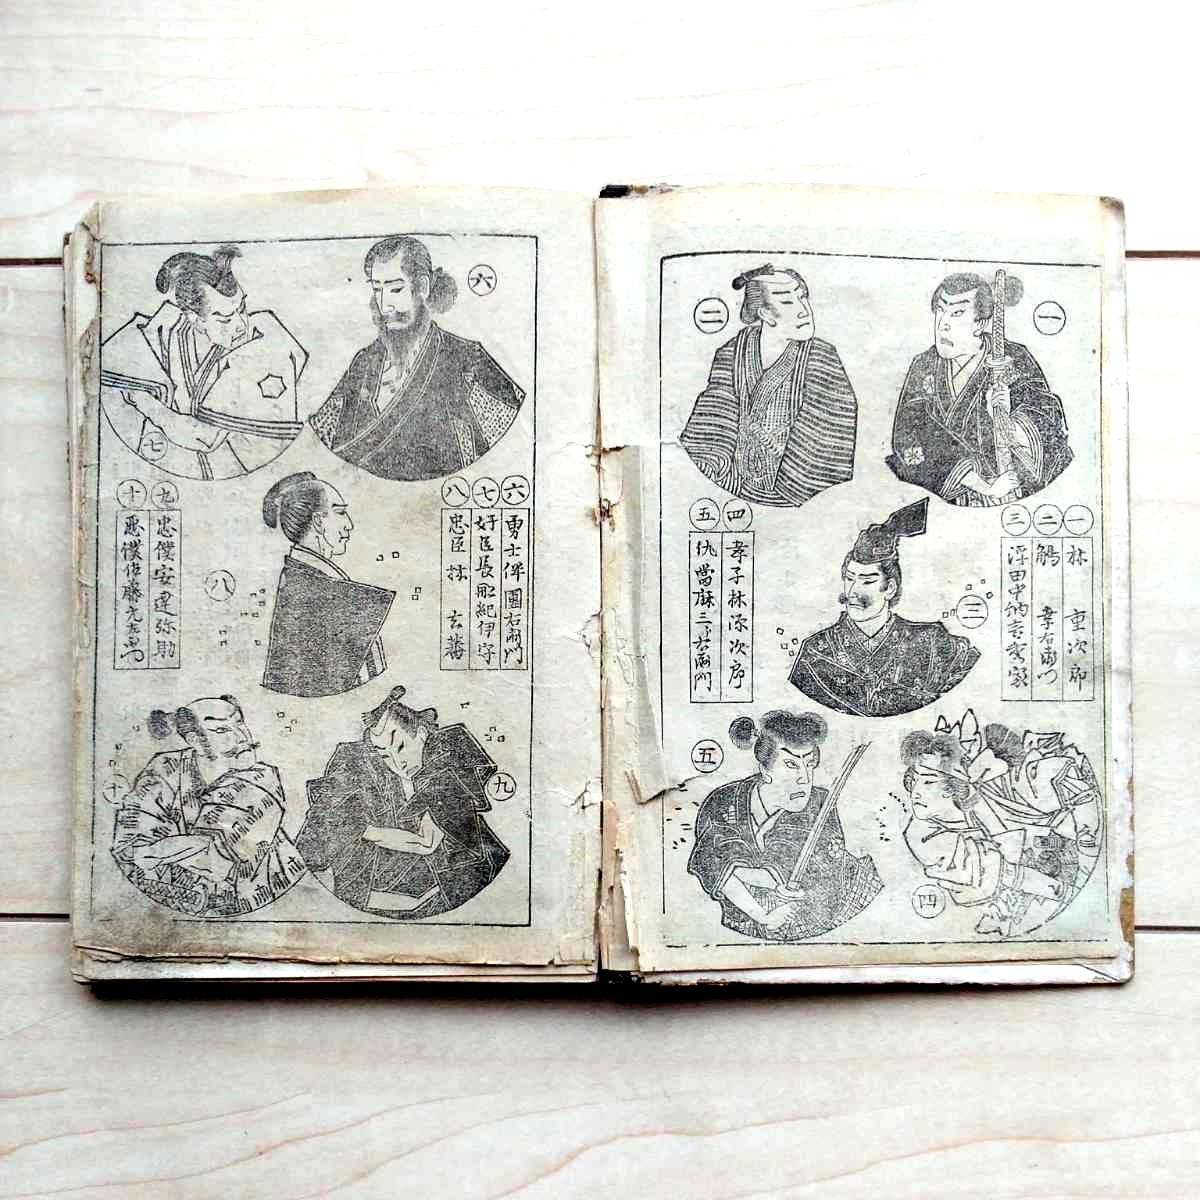 一
二
三
四
五
一 林 重次郎
二 鵤 幸右衛門
三 浮田中納言秀家
四 孝子林源次郎
五 仇當麻三郎右衛門
六
七
八
九
十
六 勇士伴團右衛門
七 奸臣長船紀伊守
八 忠臣 林 玄蕃
九 忠僕安達弥助
十 悪僕佐藤